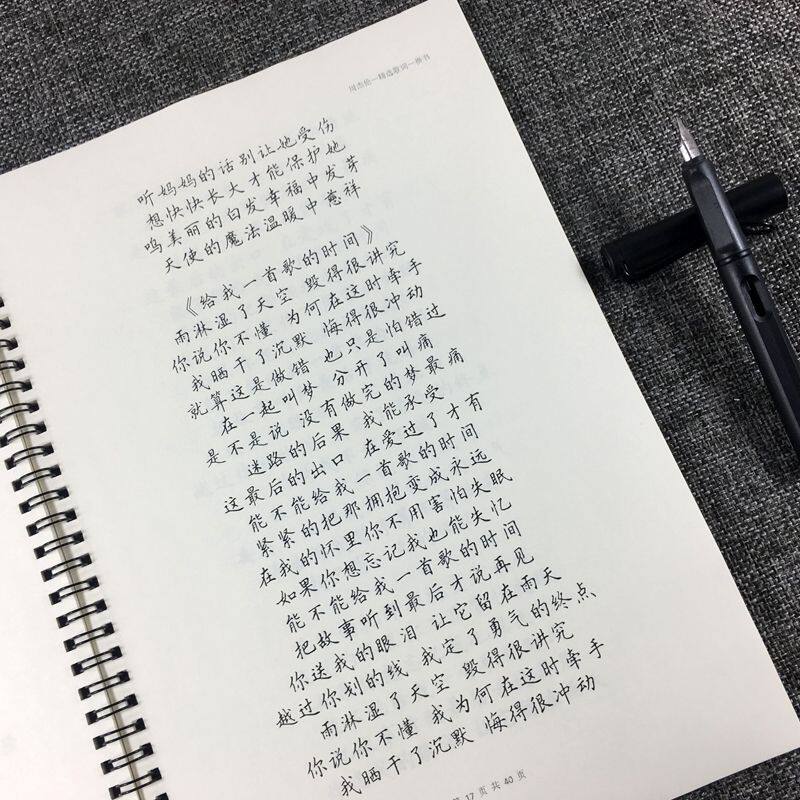 周杰伦一精选歌词一楷书
听妈妈的话别让她受伤
想快快长大才能保护她
呜美丽的白发幸福中发芽
天使的魔法温暖中慈祥
《给我一首歌的时间》
雨淋湿了天空 毁得很讲究
你说你不懂 为何在这时牵手
我晒干了沉默 悔得很冲动
就算这是做错 也只是怕错过
在一起叫梦 分开了叫痛
是不是说 没有做完的梦最痛
迷路的后果 我能承受
这最后的出口 在爱过了才有
能不能给我一首歌的时间
紧紧的把那拥抱变成永远
在我的怀里你不用害怕失眠
如果你想忘记我也能失忆
能不能给我一首歌的时间
把故事听到最后才说再见
你送我的眼泪 让它留在雨天
越过你划的线 我定了勇气的终点
雨淋湿了天空 毁得很讲究
你说你不懂 我为何在这时牵手
我晒干了沉默 悔得很冲动
第 17 页 共 40 页